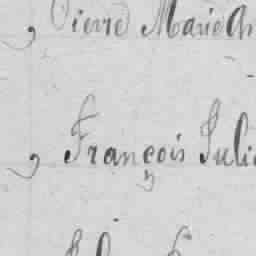 , Pierre Marie Ch
, François Juli